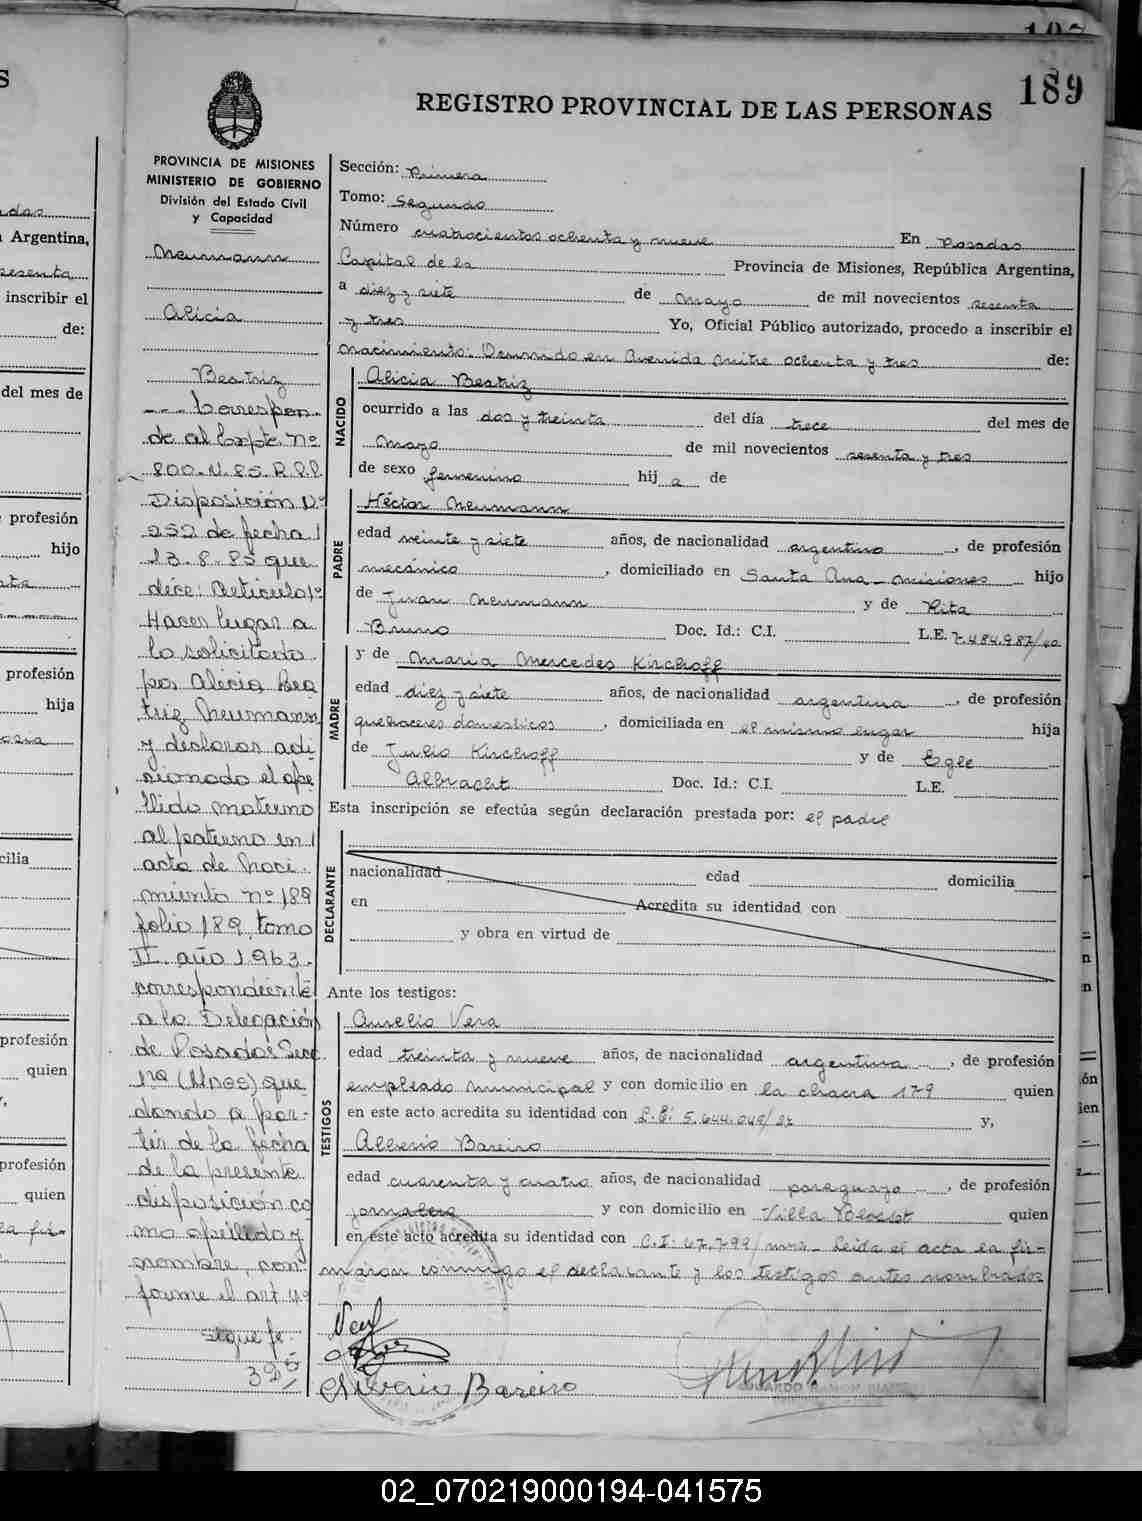 189
REGISTRO PROVINCIAL DE LAS PERSONAS
PROVINCIA DE MISIONES
MINISTERIO DE GOBIERNO
División del Estado Civil
y Capacidad
Neumann
Alicia
Beatriz
--- Correspon-
de al Expte. Nº
800-N.85.R.P.P.
Disposición Nº
252 de fecha
13.8.85 que
dice: Artículo 1º
Hacer lugar a
lo solicitado
por Alicia Bea
triz Neumann
y declarar adi
cionado el ape
llido materno
al paterno en
acta de Naci-
miento nº 189
folio 189, tomo
II año 1963.
correspondiente
a la Delegación
de Posadas Secc.
1ra (Mnes) que
dando a par-
tir de la fecha
de la presente
disposición co
mo apellido y
nombre, con
forme el art.
sigue fs.
395
Sección: Primera
Tomo: Segundo
Número cuatrocientos ochenta y nueve En Posadas
Capital de la Provincia de Misiones, República Argentina,
a diez y siete de Mayo de mil novecientos sesenta
y tres Yo, Oficial Público autorizado, procedo a inscribir el
nacimiento: Ocurrido en Avenida Mitre ochenta y tres de:
NACIDO
Alicia Beatriz
ocurrido a las dos y treinta del día trece del mes de
Mayo de mil novecientos sesenta y tres
de sexo femenino hij a de
PADRE
Héctor Neumann
edad veinte y siete años, de nacionalidad argentino, de profesión
mecánico, domiciliado en Santa Ana - Misiones hijo
de Juan Neumann y de Rita
Bruno Doc. Id.: C.I. L.E. 7.484.987/40
MADRE
y de Maria Mercedes Kirchoff
edad diez y siete años, de nacionalidad argentina, de profesión
quehaceres domesticos, domiciliada en el mismo lugar hija
de Julio Kirchoff y de Egle
Albracht Doc. Id.: C.I. L.E.
Esta inscripción se efectúa según declaración prestada por: el padre
DECLARANTE
nacionalidad edad domicilia
en Acredita su identidad con
y obra en virtud de
Ante los testigos:
TESTIGOS
Aurelio Vera
edad treinta y nueve años, de nacionalidad argentina, de profesión
empleado municipal y con domicilio en la chacra 179 quien
en este acto acredita su identidad con L.E. 5.644.049/ y,
Bareiro
edad cuarenta y cuatro años, de nacionalidad paraguayo, de profesión
jornalero y con domicilio en Villa quien
en este acto acredita su identidad con C.I. 67.799/mns - Leida el acta la fir-
maron conmigo el declarante y los testigos antes nombrados
Bareiro
S
Argentina,
inscribir el
de:
del mes de
profesión
hijo
profesión
hija
cilia
profesión
quien
profesión
quien
02_070219000194-041575